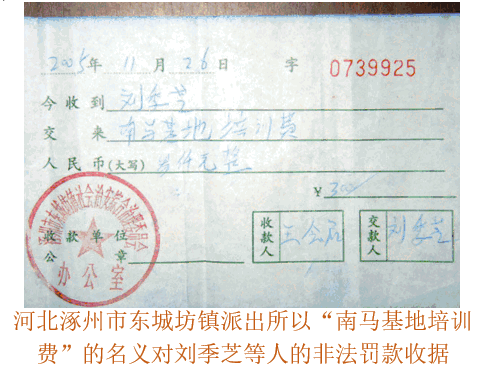 2005年 11月 26日 字 0739925
今收到 刘季芝
交来 南马基地培训费
人民币(大写) 叁仟元整
¥
收款单位
公章
办公室
收款人
交款人 刘季芝
河北涿州市东城坊镇派出所以“南马基地培训
费”的名义对刘季芝等人的非法罚款收据